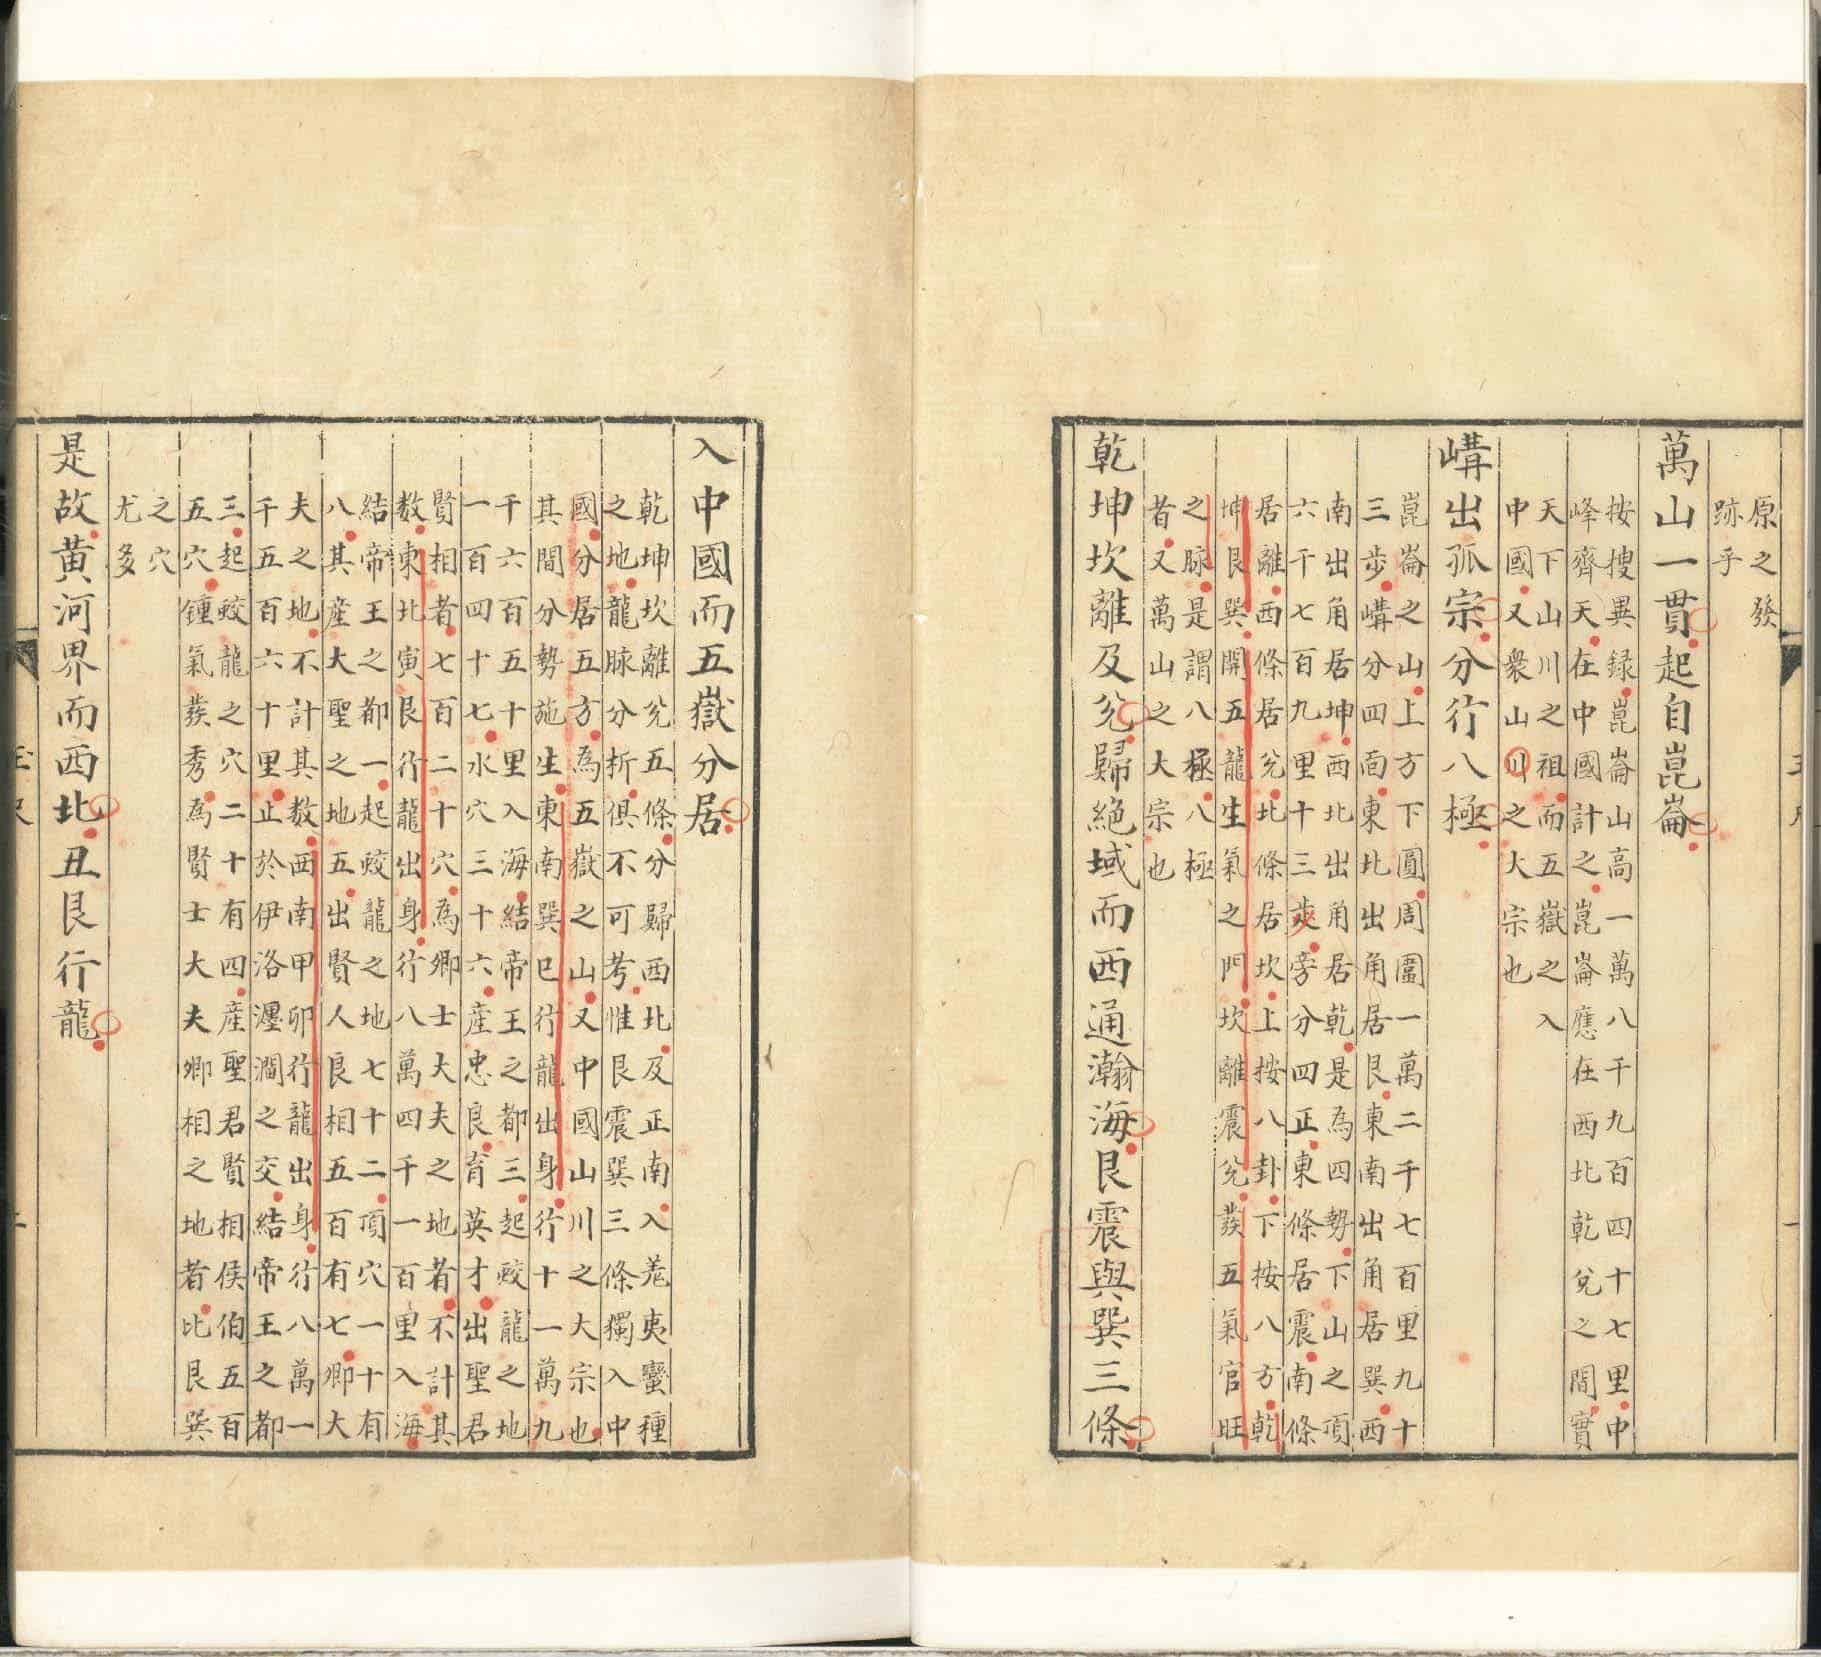 原之發
跡乎
萬山一貫起自崑崙
按搜異録崑崙山高一萬八千九百四十七里中
峰齊天在中國計之崑崙應在西北乾兌之間實
天下山川之祖而五嶽之入
中國又衆山川之大宗也
出孤宗分行八極
崑崙之山上方下圓周圍一萬二千七百里九十
三步分四面東北出角居艮東南出角居巽西
南出角居坤西北出角居乾是為四勢下山之項
六千七百九里十三步旁分四正東條居震南條
居離西條居兌北條居坎上按八卦下按八方乾
坤艮巽開五龍生氣之門坎離震兌發五氣官旺
之脉是謂八極八極
者又萬山之大宗也
乾坤坎離及兌歸絶域而西通瀚海艮震與巽三條
入中國而五嶽分居
乾坤坎離兌五條分歸西北及正南入羌夷蠻種
之地龍脉分折俱不可考惟艮震巽三條獨入中
國分居五方為五嶽之山又中國山川之大宗也
其間分勢施生東南巽巳行龍出身行十一萬九
千六百五十里入海結帝王之都三起蛟龍之地
一百四十七水穴三十六産忠良育英才出聖君
賢相者七百二十穴為卿士大夫之地者不計其
数東北寅艮行龍出身行八萬四千一百里入海
結帝王之都一起蛟龍之地七十二項穴一十有
八其産大聖之地五出賢人良相五百有七卿大
夫之地不計其数西南甲卯行龍出身行八萬一
千五百六十里止於伊洛瀍澗之交結帝王之都
三起蛟龍之穴二十有四産聖君賢相侯伯五百
五穴鍾氣發秀為賢士大夫卿相之地者比艮巽
之穴
尤多
是故黄河界而西北丑艮行龍